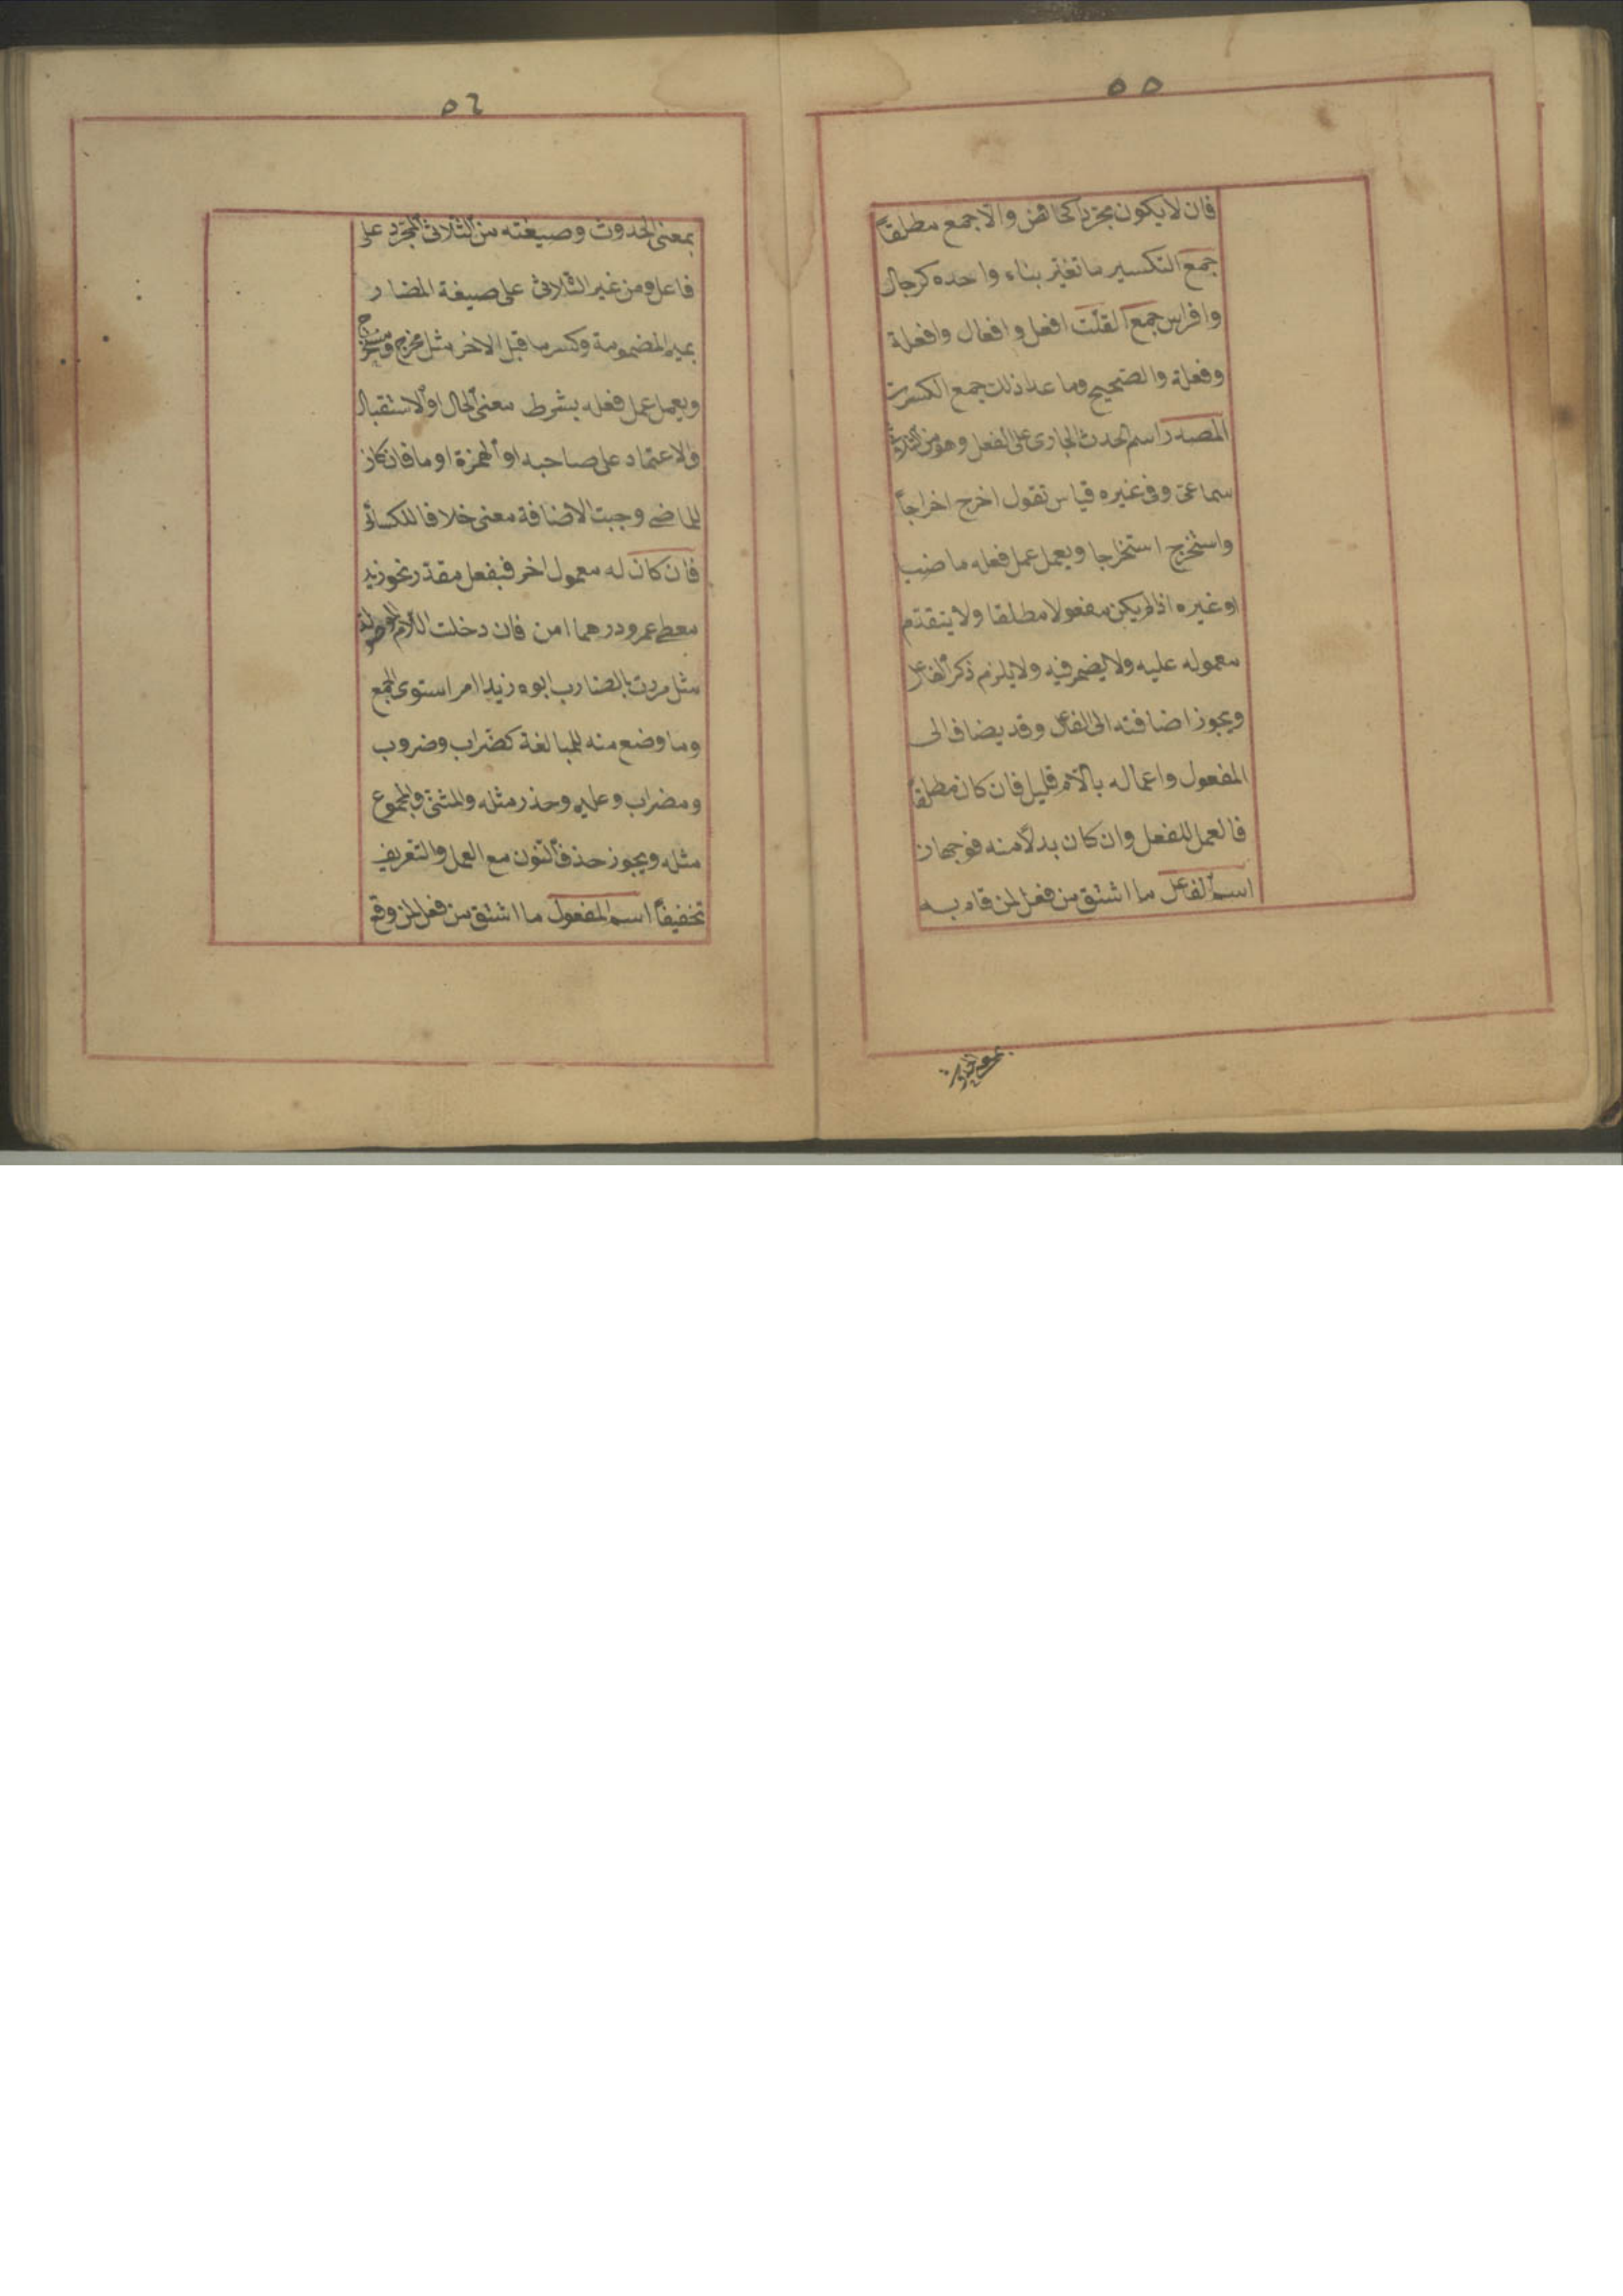 ٥٥
فان لا يكون مجردا كحائض والا جمع مطلقاً
جمع التكسير ما تغير بناء واحده كرجال
وافراس جمع القلت افعل وافعال وافعلة
وفعلة والصحيح وما عدا ذلك جمع الكثرت
المصدر اسم الحدث الجارى على الفعل وهو من الثلاثى
سماعى وفى غيره قياس تقول اخرج اخراجاً
واستخرج استخراجا ويعمل عمل فعله ماضيا
او غيره اذا لم يكن مفعولا مطلقا ولا يتقدم
معموله عليه ولا يضمر فيه ولا يلزم ذكر الفاعل
ويجوز اضافته الى الفاعل وقد يضاف الى
المفعول واعماله باللام قليل فان كان مطلقاً
فالعمل للفعل وان كان بدلاً منه فوجهان
اسم الفاعل ما اشتق من فعل لمن قام به
بمعنى الحدوث
٥٦
بمعنى الحدوث وصيغته من الثلاثى المجرد على
فاعل ومن غير الثلاثى على صيغة المضار
بميم المضمومة وكسر ما قبل الاخر مثل مخرج ومستخرج
ويعمل عمل فعله بشرط معنى الحال او الاستقبال
والاعتماد على صاحبه او الهمزة او ما فان كان
للماضى وجبت الاضافة معنى خلافا للكسائى
فان كان له معمول اخر فبفعل مقدر نحو زيد
معطى عمرو درهما امن فان دخلت اللام الموصولة
مثل مررت بالضارب ابوه زيدا امر استوى الجمع
وما وضع منه للمبالغة كضراب وضروب
ومضراب وعليم وحذر مثله والمثنى والمجموع
مثله ويجوز حذف النون مع العمل والتعريف
تخفيفاً اسم المفعول ما اشتق من فعل لمن وقع